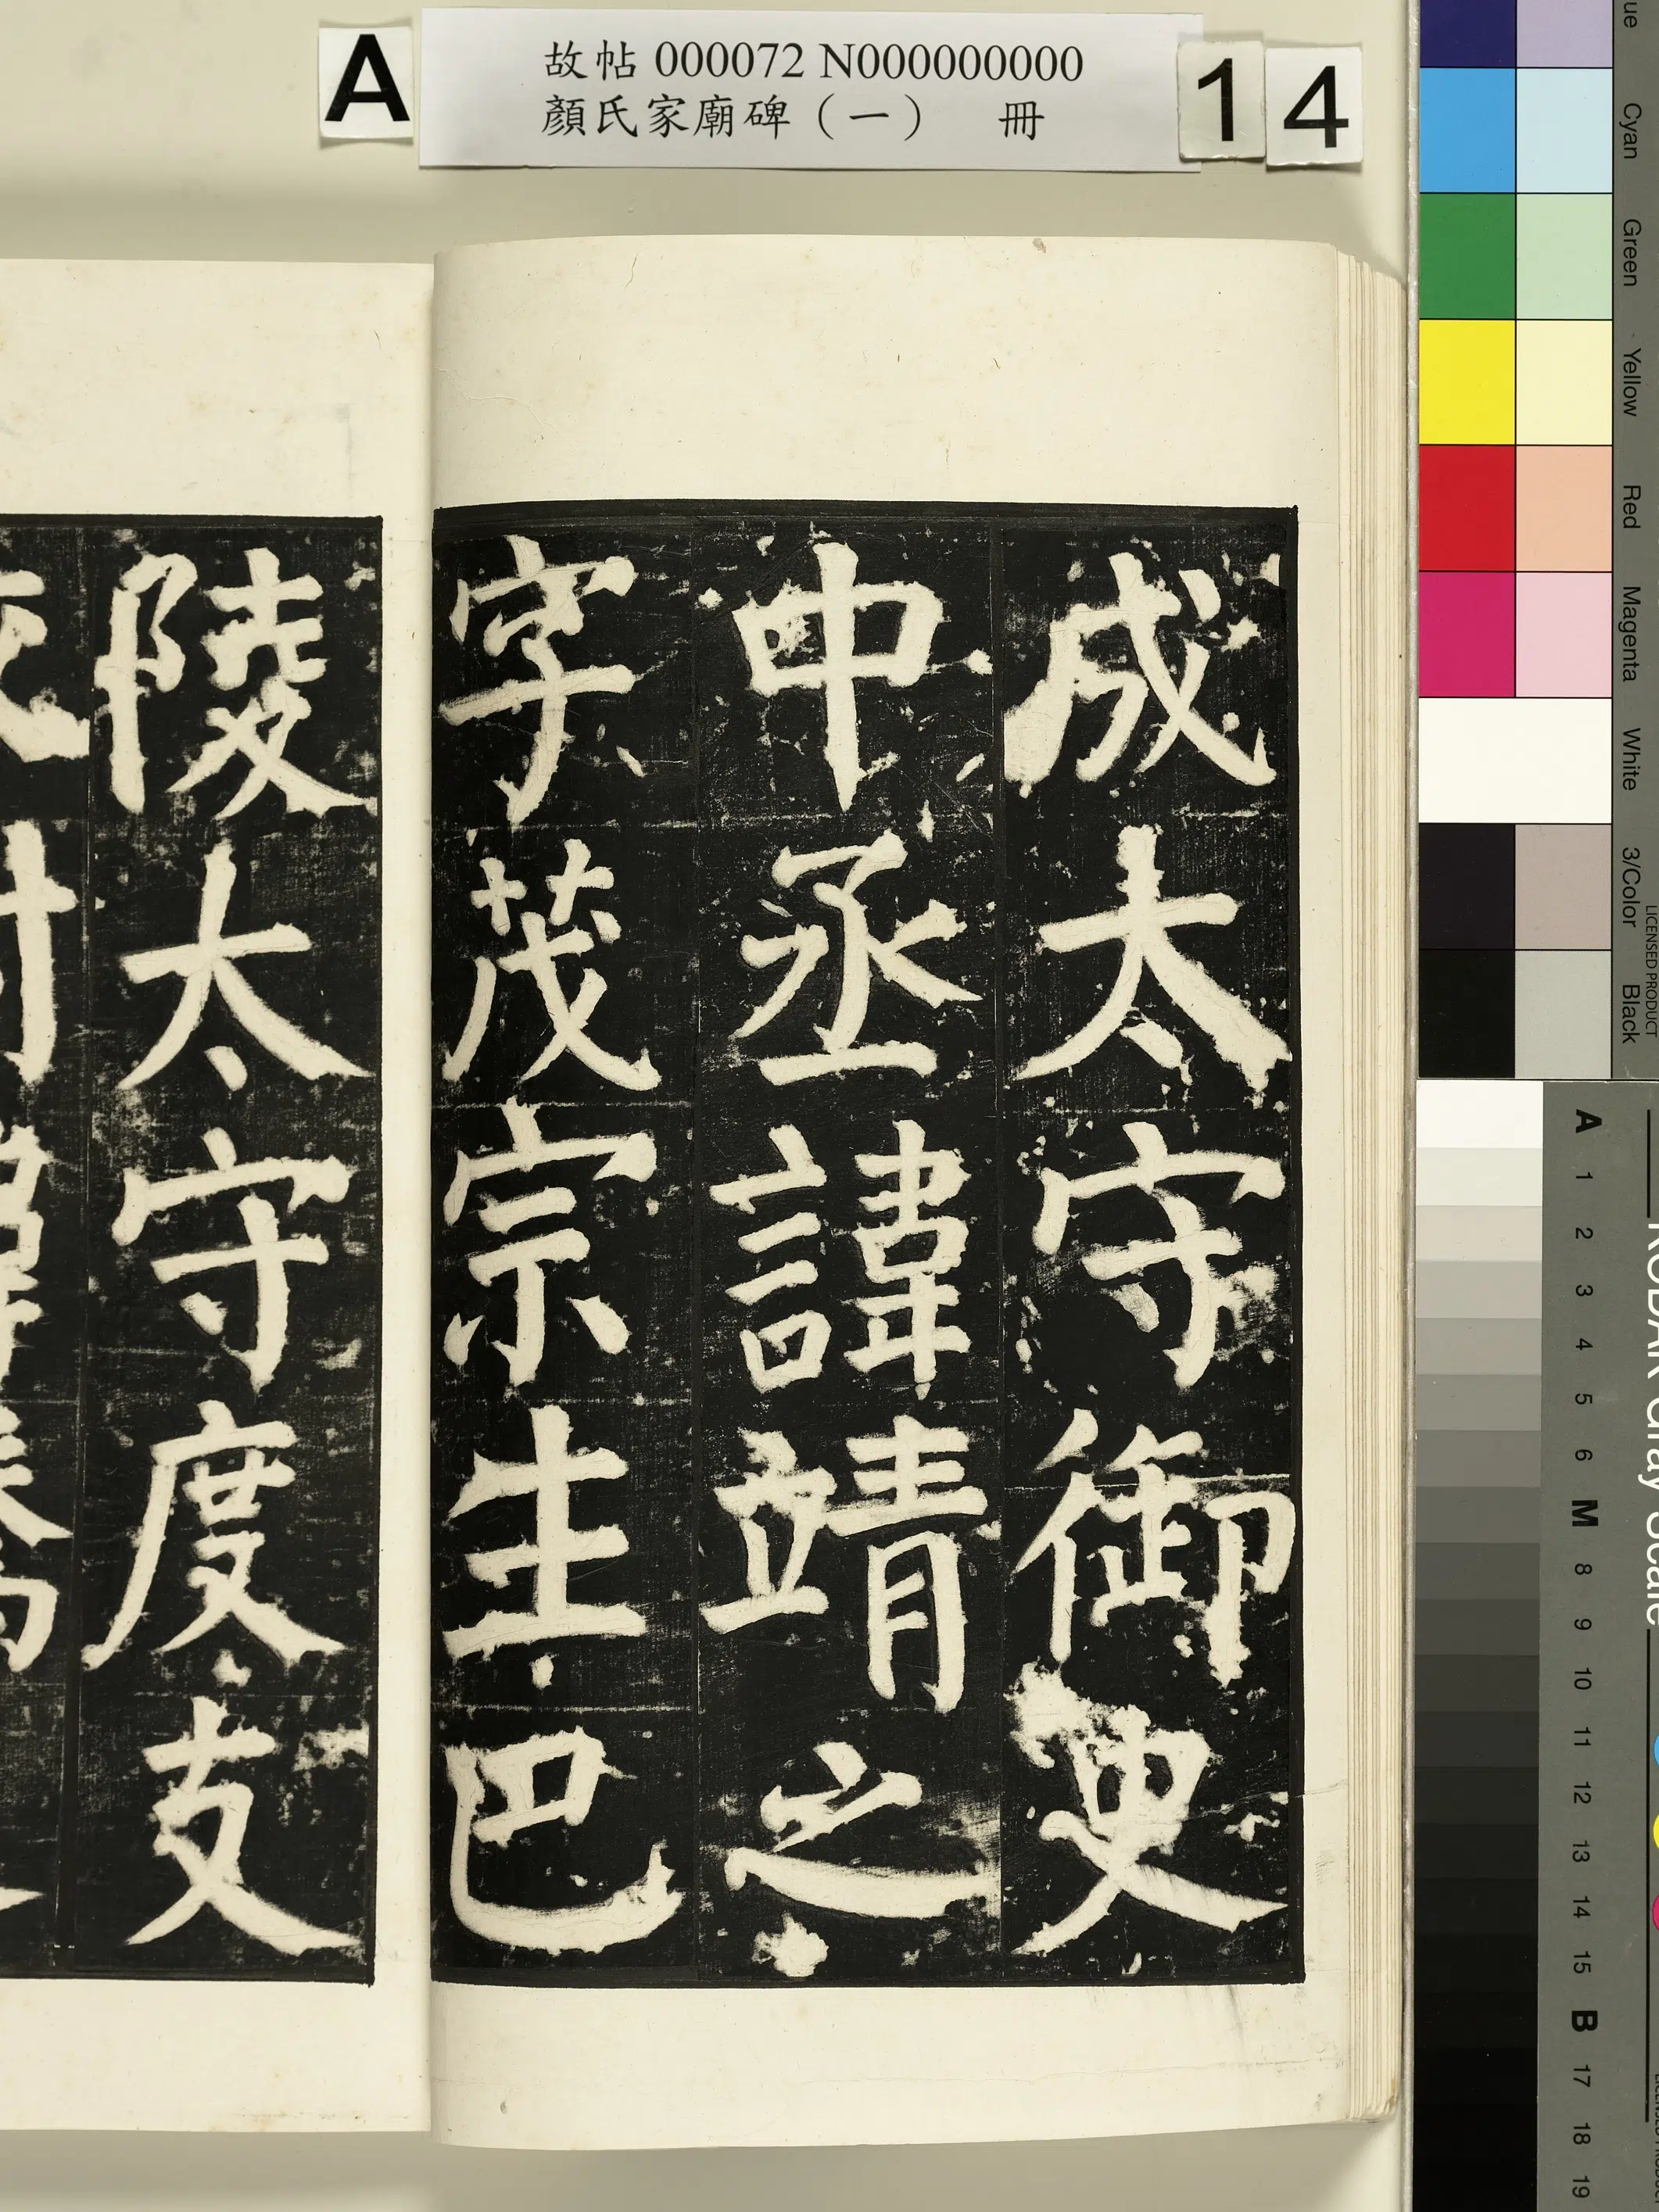 A
故帖 000072 N000000000
顏氏家廟碑（一） 冊
14
成太守御史
中丞諱靖之
字茂宗生巴
陵太守度支
ue
Cyan
Green
Yellow
Red
Magenta
White
3/Color
Black
LICENSED PRODUCT
KODAK Gray Scale
A 1 2 3 4 5 6 M 8 9 10 11 12 13 14 15 B 17 18 19